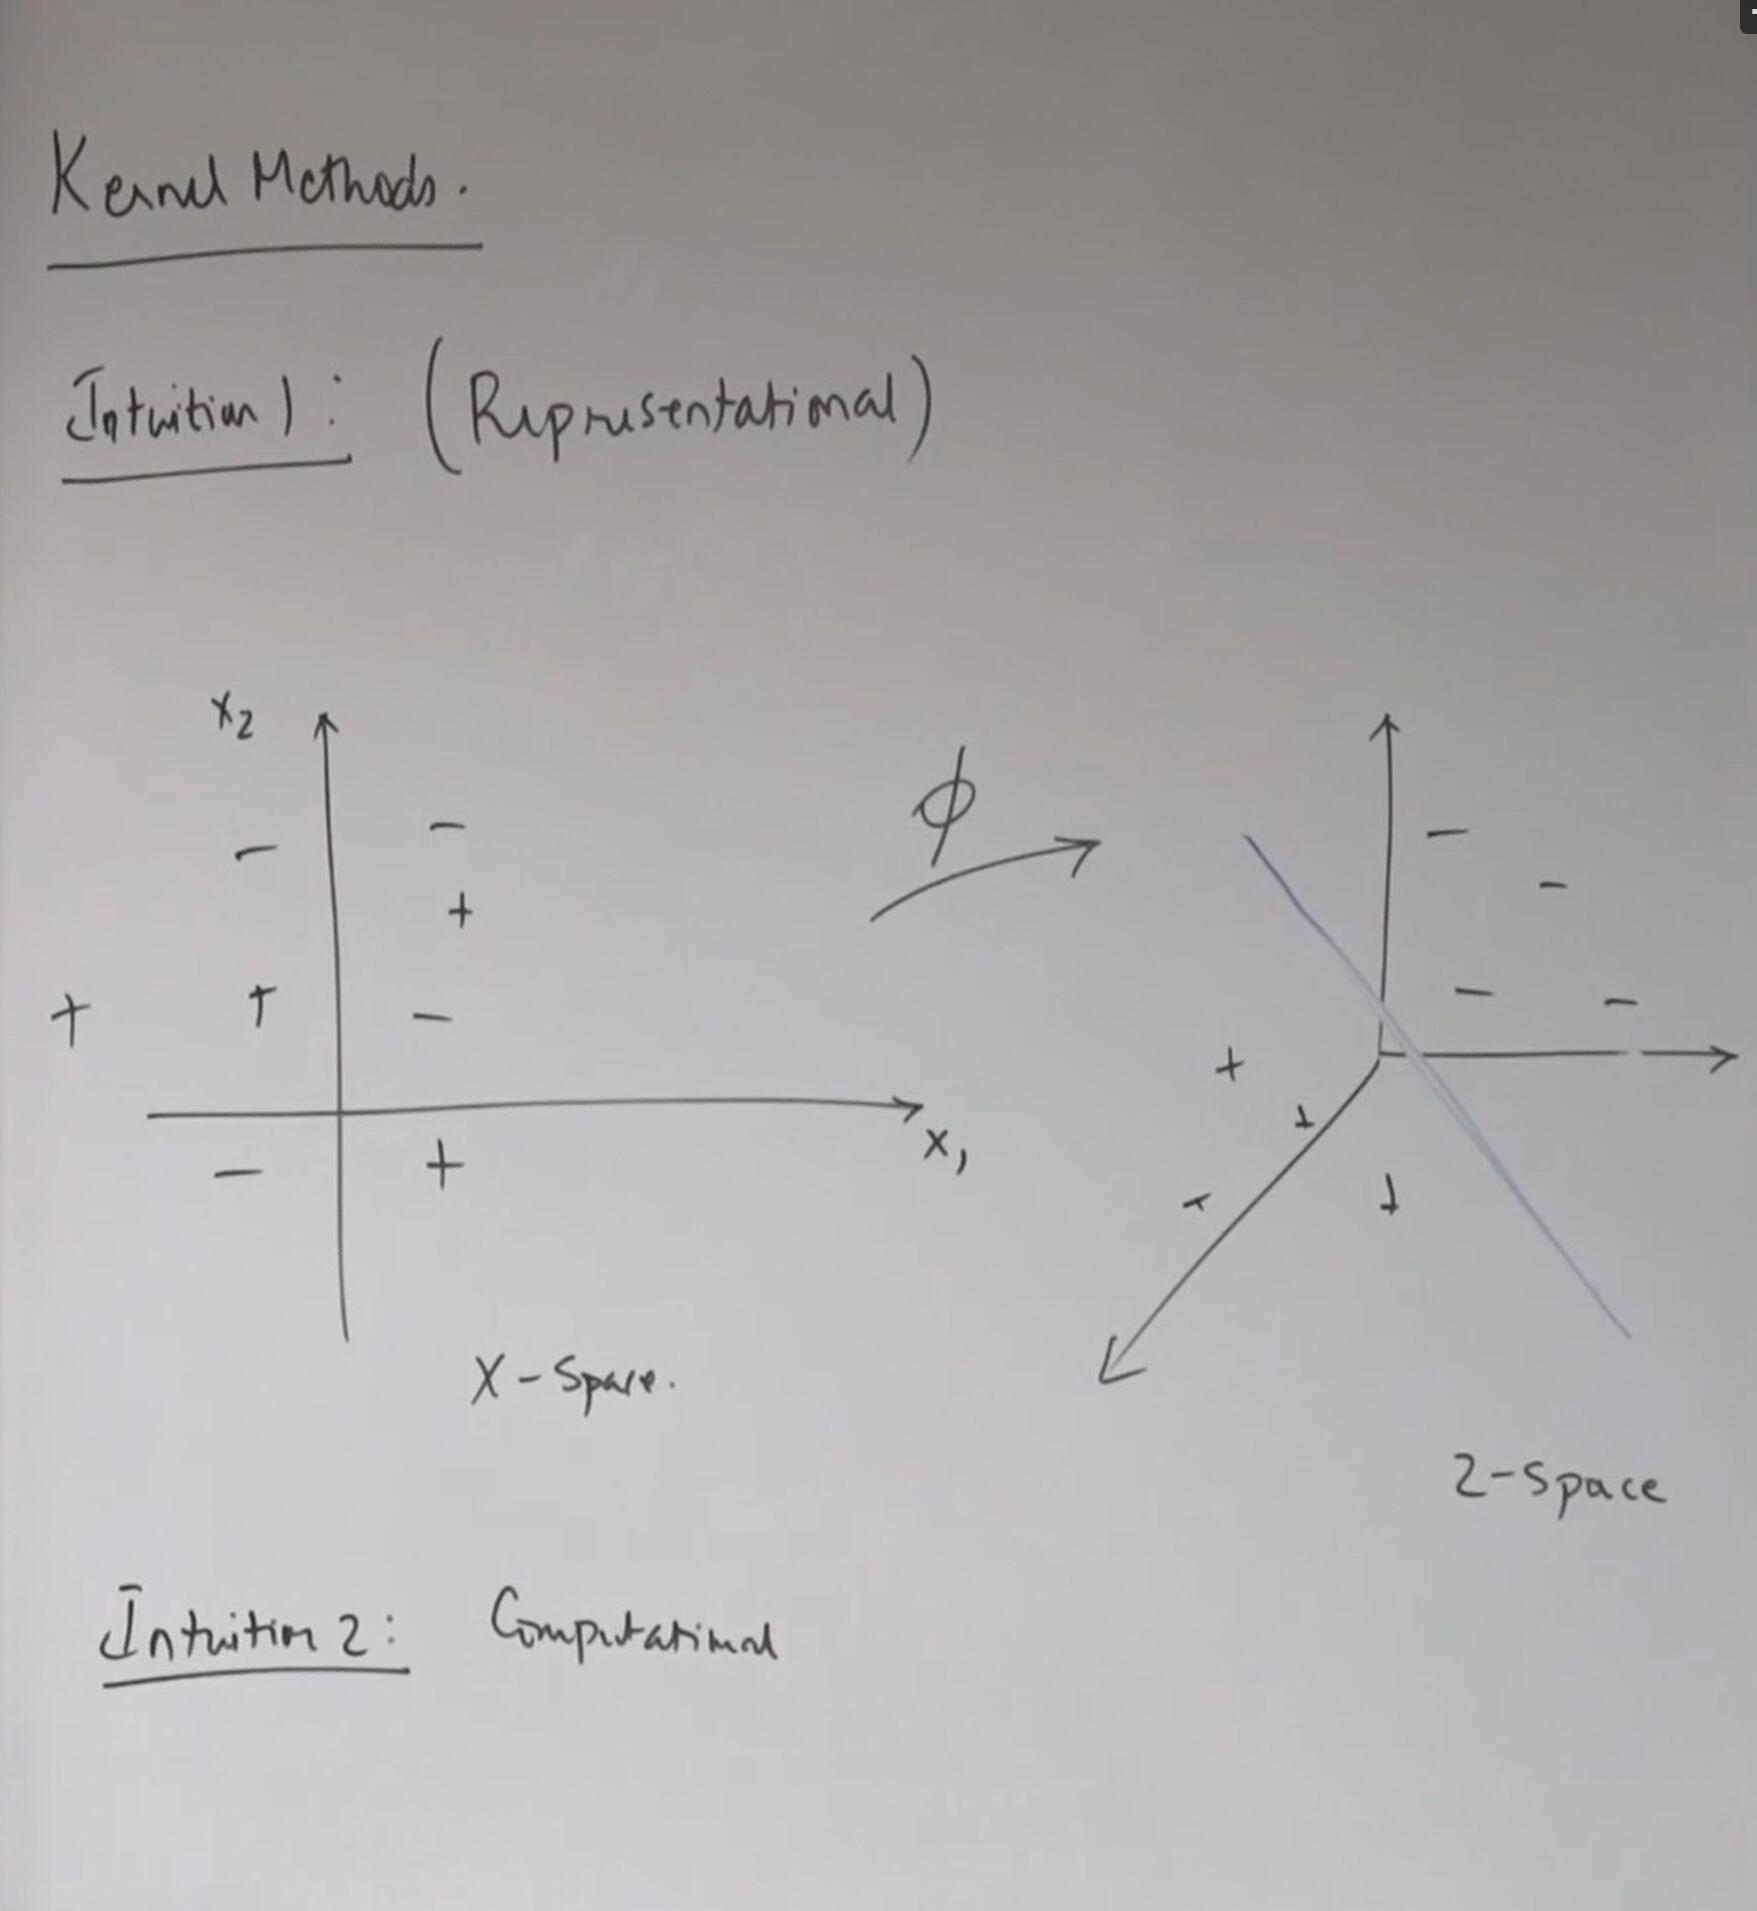 Kernel Methods.
Intuition 1: (Representational)
x2
- -
+
+ + -
x1
- +
X-Space.
ϕ
-
-
- -
+
+
+
+
Z-Space
Intuition 2: Computational